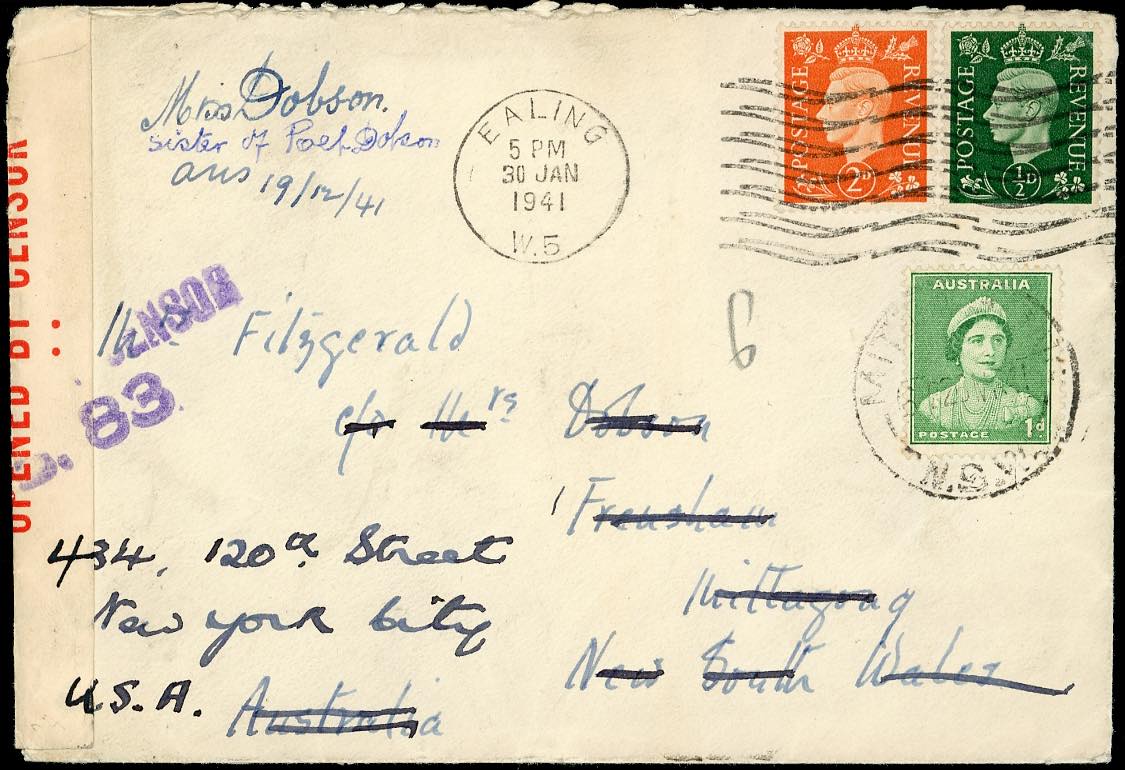 Miss Dobson.
sister of Poet Dobson
ans 19/12/41
EALING
5 PM
30 JAN
1941
W.5
POSTAGE REVENUE
2D
POSTAGE REVENUE
½D
AUSTRALIA
POSTAGE 1d
N.S.W.
OPENED BY CENSOR
CENSOR
83.
6
Fitzgerald
c/o Mrs Dobson
Frensham
Mittagong
New South Wales
Australia
434, 120th Street
New York City
U.S.A.